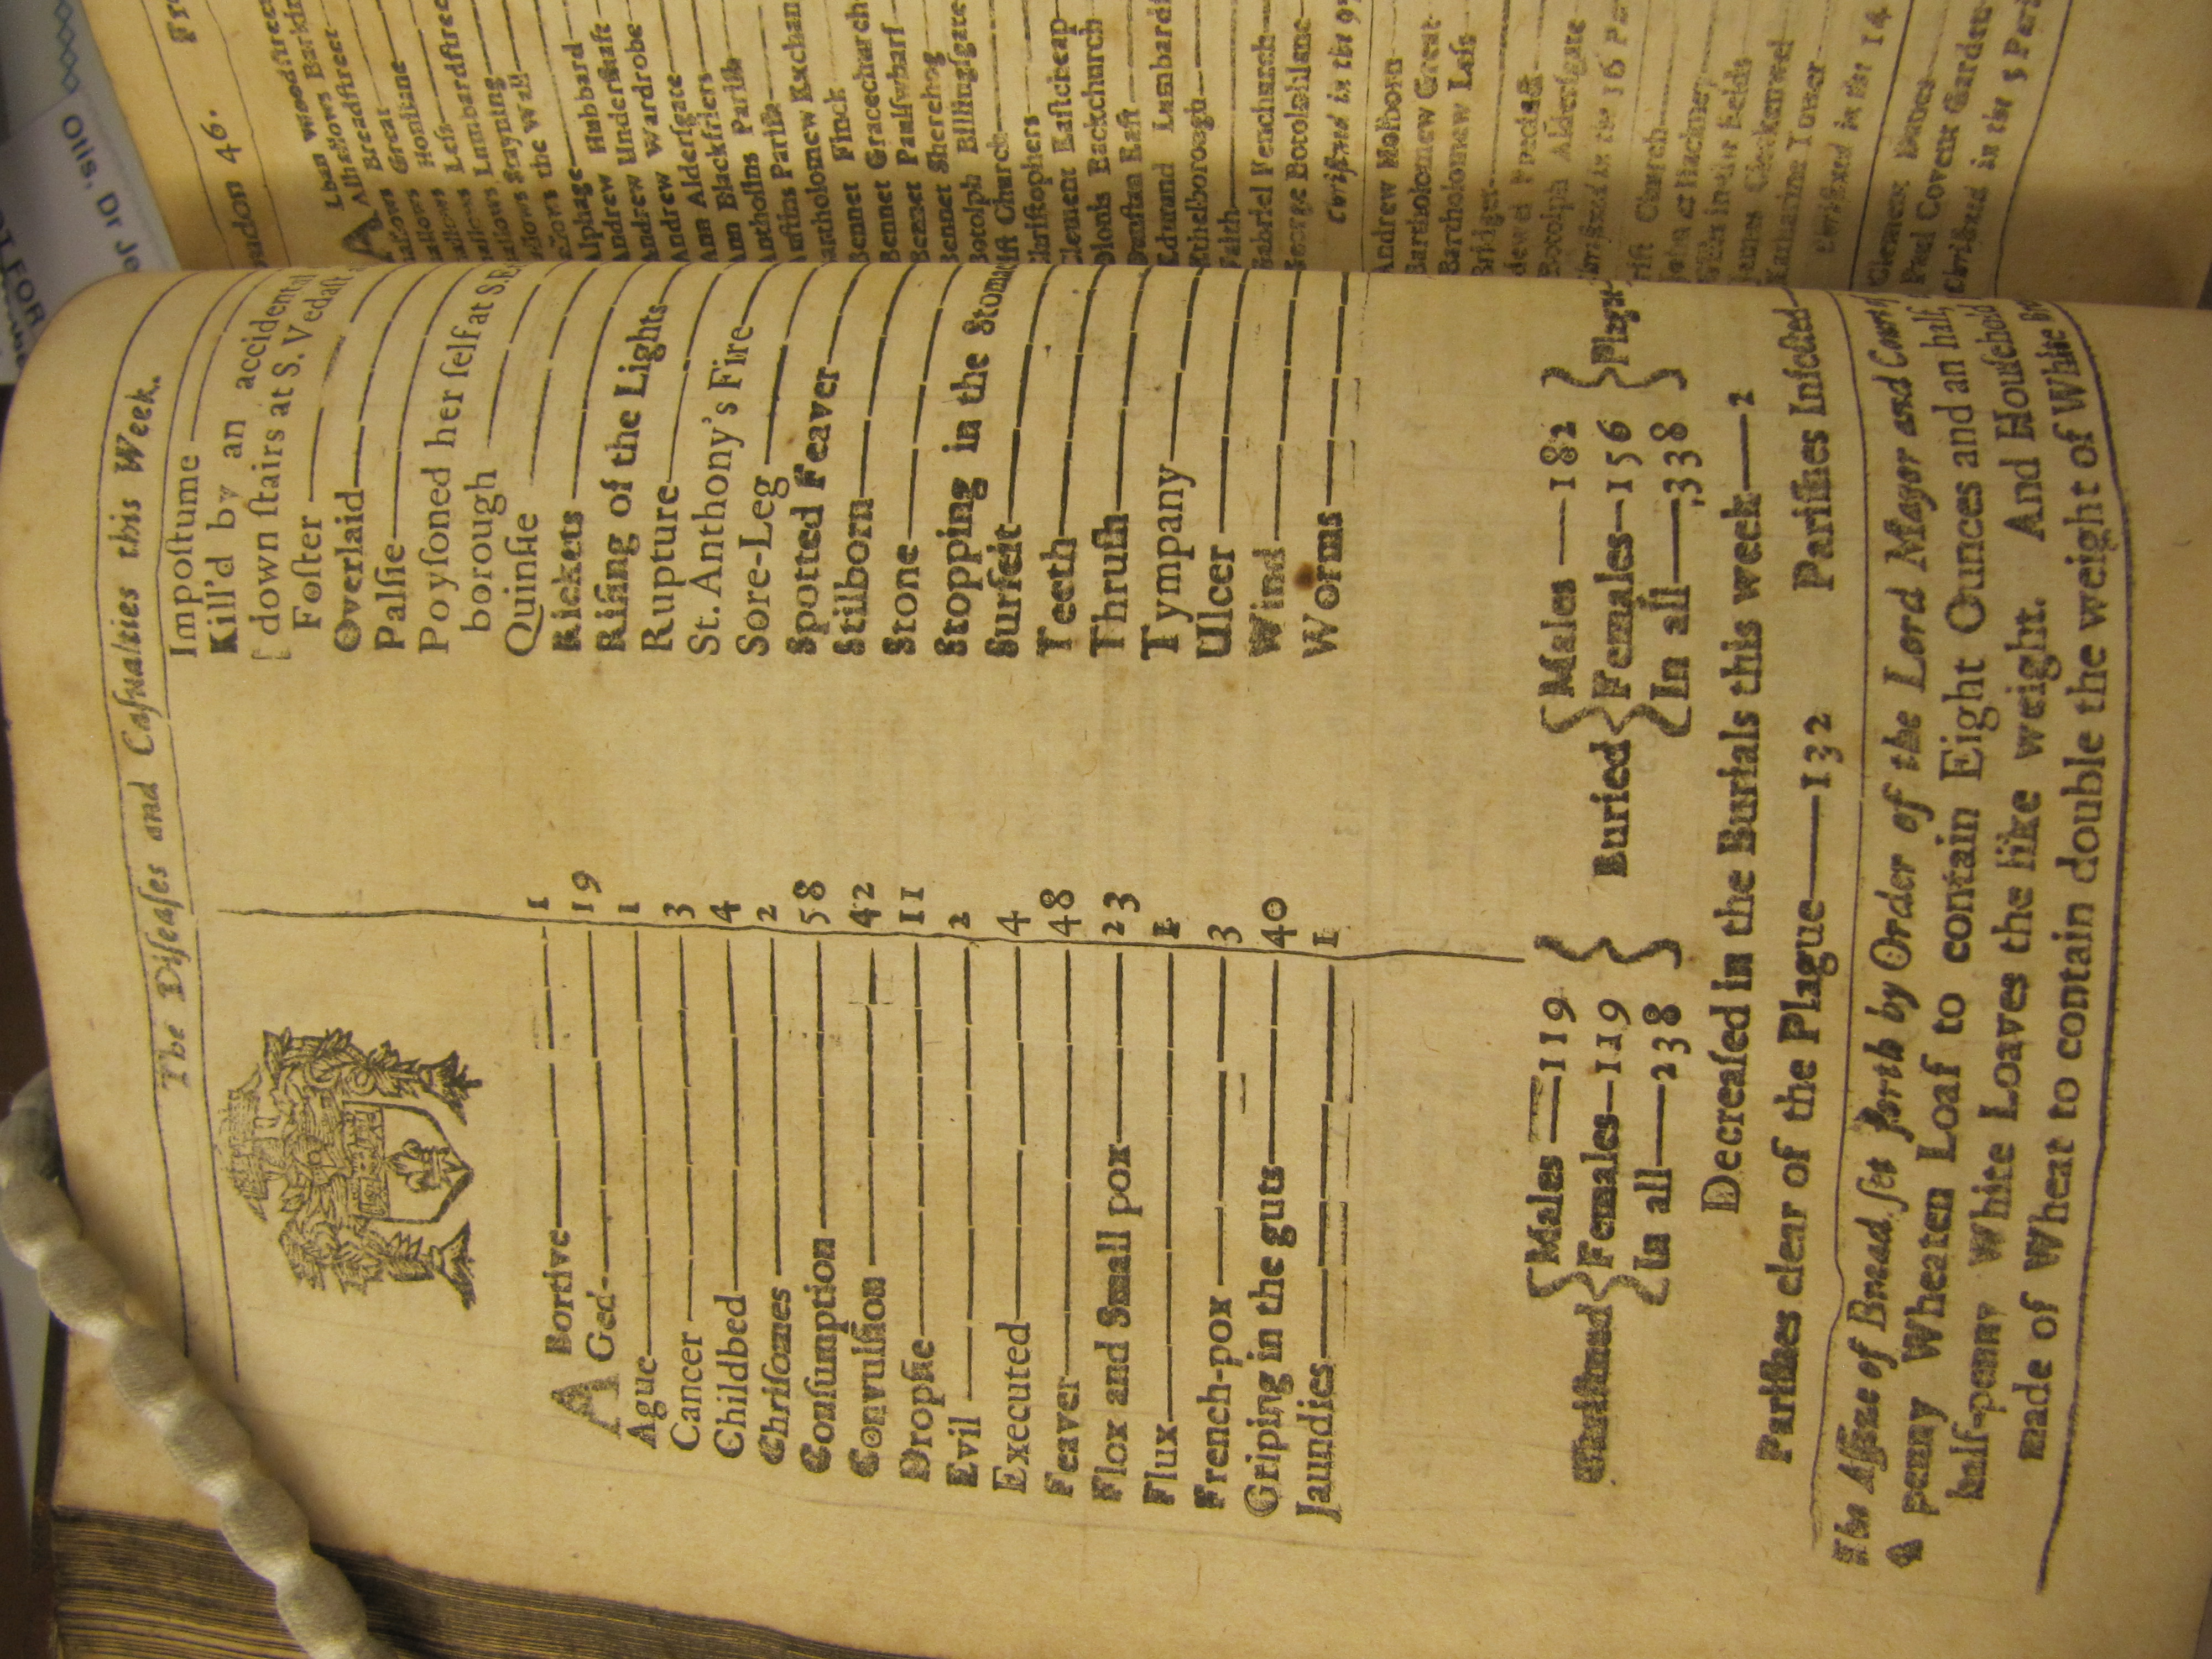 The Diſeaſes and Caſualties this Week.
A Bortive 1
Ged 19
Ague 1
Cancer 3
Childbed 4
Chriſomes 2
Conſumption 58
Convulſion 42
Dropſie 11
Evil 2
Executed 4
Feaver 48
Flox and Small pox 23
Flux 1
French-pox 3
Griping in the guts 40
Jaundies 1
Impoſtume
Kill'd by an accidental
[down ſtairs at S. Vedaſt
Foſter
Overlaid
Palſie
Poyſoned her ſelf at S.E
borough
Quinſie
Rickets
Riſing of the Lights
Rupture
St. Anthony's Fire
Sore-Leg
Spotted Feaver
Stilborn
Stone
Stopping in the Stom
Surfeit
Teeth
Thruſh
Tympany
Ulcer
Wind
Worms
Chriſtned { Males 119 Females 119 In all 238 }
Buried { Males 182 Females 156 In all 338 } Plague
Decreaſed in the Burials this week 2
Pariſhes clear of the Plague 132 Pariſhes Infected
The Aſſize of Bread ſet forth by Order of the Lord Mayor and Court of
A penny Wheaten Loaf to contain Eight Ounces and an half,
half-penny White Loaves the like weight. And Houſehold
made of Wheat to contain double the weight of White
London 46. Fr
A Lban Woodſtreet
Alhallows Barkin
Breadſtreet
Great
Honilane
Leſs
Lumbardſtree
Stayning
the Wall
Alphage
Andrew Hubbard
Andrew Underſhaft
Andrew Wardrobe
Ann Alderſgate
Ann Blackfriers
Antholins Pariſh
Auſtins Pariſh
Bartholomew Exchan
Bennet Finck
Bennet Gracechurch
Bennet Paulſwharf
Bennet Sherehog
Botolph Billingſgate
Chriſt Church
Chriſtophers
Clement Eaſtcheap
Dionis Backchurch
Dunſtan Eaſt
Edmund Lumbardſ
Ethelborough
Faith
Gabriel Fenchurch
George Botolphlane
Chriſtned in the 97
Andrew Holborn
Bartholomew Great
Bartholomew Leſs
Bridget
Bridewel Precinct
Botolph Alderſgate
Chriſtned in the 16 Par
Chriſt Church
John at Hackney
Giles in the fields
James Clerkenwel
Katharine Tower
Chriſtned in the 14
Clement Danes
Paul Covent Garden
Chriſtned in the 5 Pari
Otis, Dr Jo
FOR